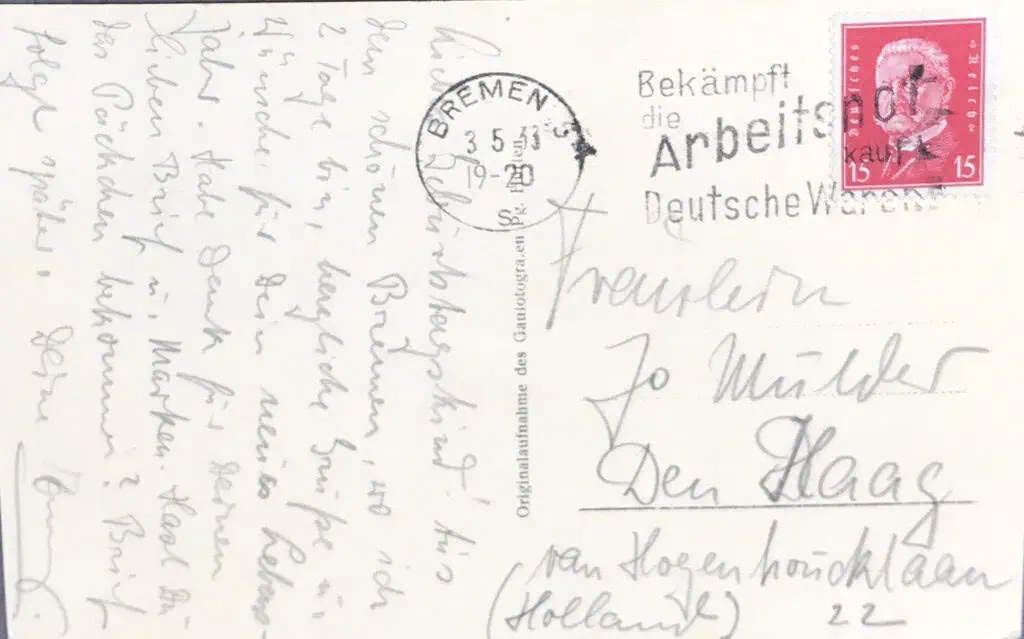 Bekämpft
die
Arbeitsnot
kauft
Deutsche Waren
Deutsches Reich
15 15
BREMEN
3 5 33
19-20
S
Geburtstagskind! Aus
dem schönen Bremen, wo ich
2 Tage bin, herzliche Grüße u.
Wünsche für Dein neues Lebens-
Jahr. Habe Dank für Deinen
lieben Brief u. Marken. Hast Du
das Päckchen bekommen? Brief
folgt später. Deine
Originalaufnahme des Gaufotogra.en Pg.
Fräulein
Jo Mulder
Den Haag
van Hogenhoucklaan
22
(Holland)